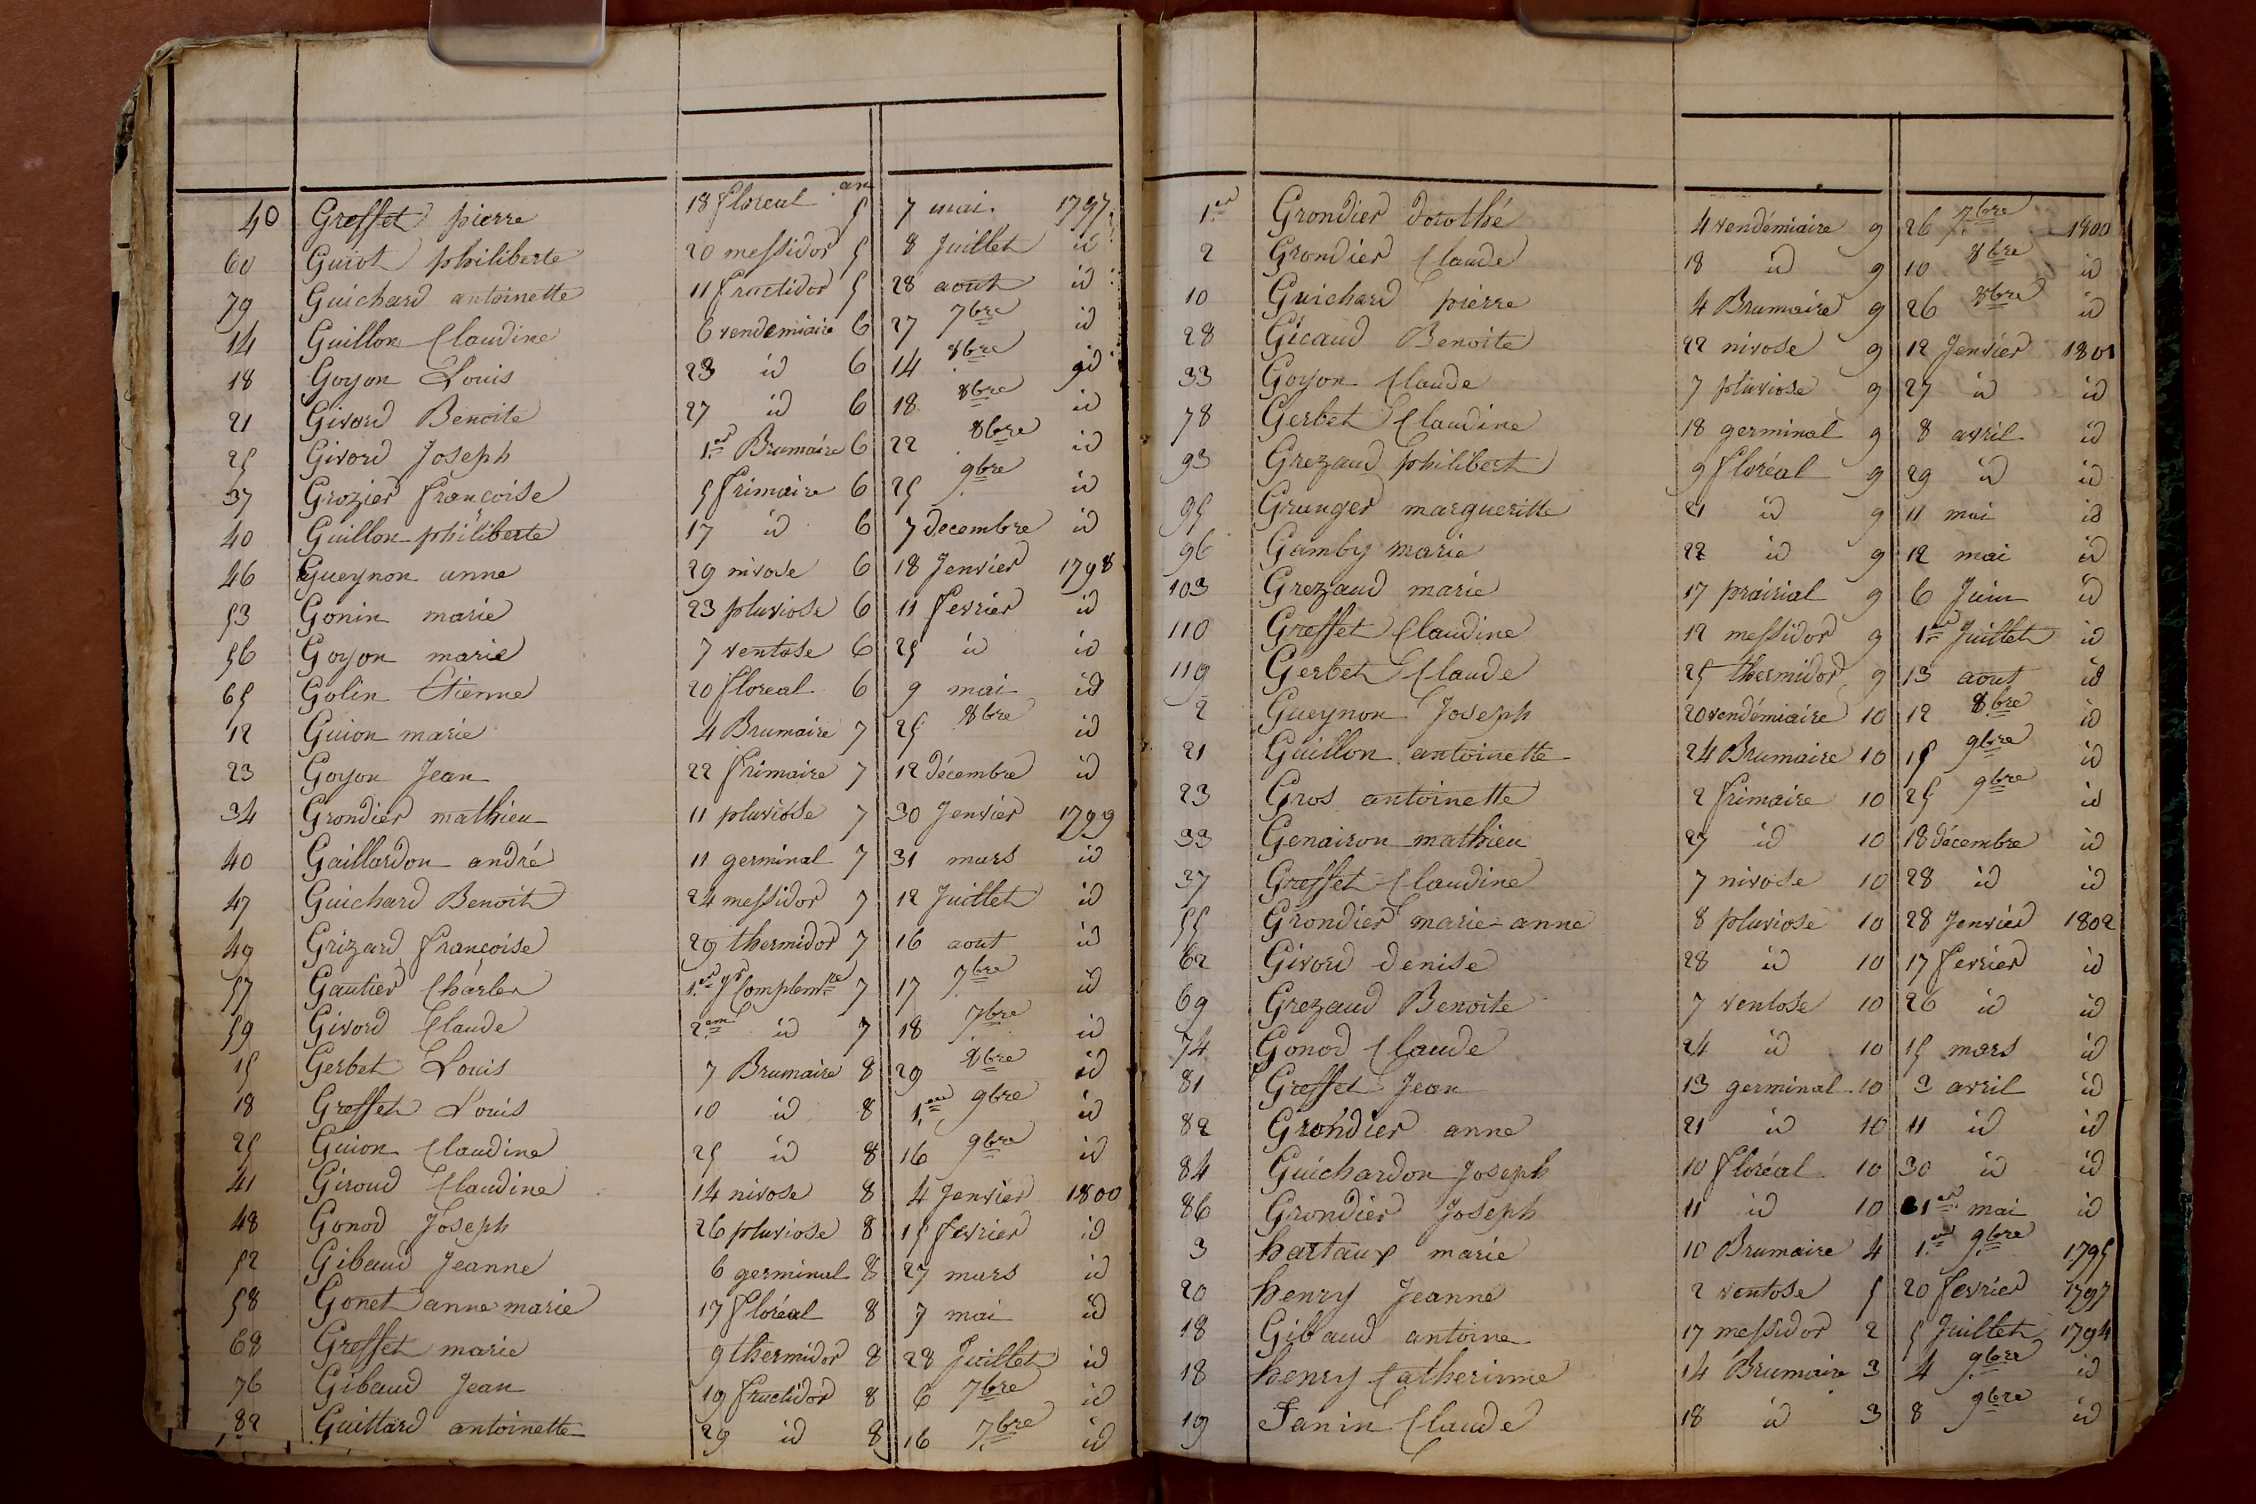 40 Greffet pierre 18 floreal an 5 7 mai 1797
60 Guiot philiberte 20 messidor 5 8 Juillet id
79 Guichard antoinette 11 fructidor 5 28 aout id
14 Guillon Claudine 6 vendemiaire 6 27 7bre id
18 Goyon Louis 23 id 6 14 8bre id
21 Givord Benoite 27 id 6 18 8bre id
25 Givord Joseph 1er Brumaire 6 22 8bre id
37 Grozier françoise 5 frimaire 6 25 9bre id
40 Guillon philiberte 17 id 6 7 decembre id
46 Gueynon anne 29 nivose 6 18 Jenvier 1798
53 Gonin marie 23 pluviose 6 11 fevrier id
56 Goyon marie 7 ventose 6 25 id id
65 Golin Etienne 20 floreal 6 9 mai id
12 Guion marie 4 Brumaire 7 25 8bre id
23 Goyon Jean 22 frimaire 7 12 décembre id
34 Grondier mathieu 11 pluviose 7 30 Jenvier 1799
40 Gaillardon andré 11 germinal 7 31 mars id
47 Guichard Benoit 24 messidor 7 12 Juillet id
49 Grizard françoise 29 thermidor 7 16 aout id
57 Gautier Charles 1er Jr Complemre 7 17 7bre id
59 Givord Claude 2em id 7 18 7bre id
15 Gerbet Louis 7 Brumaire 8 29 8bre id
18 Greffet Louis 10 id 8 1er 9bre id
25 Guion Claudine 25 id 8 16 9bre id
41 Giroud Claudine 14 nivose 8 4 Jenvier 1800
48 Gonod Joseph 26 pluviose 8 15 fevrier id
52 Gibaud Jeanne 6 germinal 8 27 mars id
58 Gonet anne marie 17 floréal 8 7 mai id
68 Greffet marie 9 thermidor 8 28 Juillet id
76 Gibaud Jean 19 fructidor 8 6 7bre id
82 Guittard antoinette 29 id 8 16 7bre id
1er Grondier dorothé 4 vendémiaire 9 26 7bre 1800
2 Grondier Claude 18 id 9 10 8bre id
10 Guichard pierre 4 Brumaire 9 26 8bre id
28 Gicaud Benoite 22 nivose 9 12 Jenvier 1801
33 Goyon Claude 7 pluviose 9 27 id id
78 Gerbet Claudine 18 germinal 9 8 avril id
93 Grezaud philibert 9 floréal 9 29 id id
95 Grunger margueritte 21 id 9 11 mai id
96 Gamby marie 22 id 9 12 mai id
103 Grezaud marie 17 prairial 9 6 Juin id
110 Greffet Claudine 12 messidor 9 1er Juillet id
119 Gerbet Claude 25 thermidor 9 13 aout id
2 Gueynon Joseph 20 vendémiaire 10 12 8bre id
21 Guillon antoinette 24 Brumaire 10 15 9bre id
23 Gros antoinette 2 frimaire 10 25 9bre id
33 Genairon mathieu 27 id 10 18 décembre id
37 Greffet Claudine 7 nivose 10 28 id id
55 Grondier marie anne 8 pluviose 10 28 Jenvier 1802
62 Givord denise 28 id 10 17 fevrier id
69 Grezaud Benoite 7 ventose 10 26 id id
74 Gonod Claude 24 id 10 15 mars id
81 Greffet Jean 13 germinal 10 3 avril id
82 Grondier anne 21 id 10 11 id id
84 Guichardon Joseph 10 floréal 10 30 id id
86 Grondier Joseph 11 id 10 1er mai id
3 hartaux marie 10 Brumaire 4 1er 9bre 1795
20 henry Jeanne 2 ventose 5 20 fevrier 1797
18 Gibaud antoine 17 messidor 2 5 Juillet 1794
18 henry Catherinne 14 Brumaire 3 4 9bre id
19 Janin Claude 18 id 3 8 9bre id